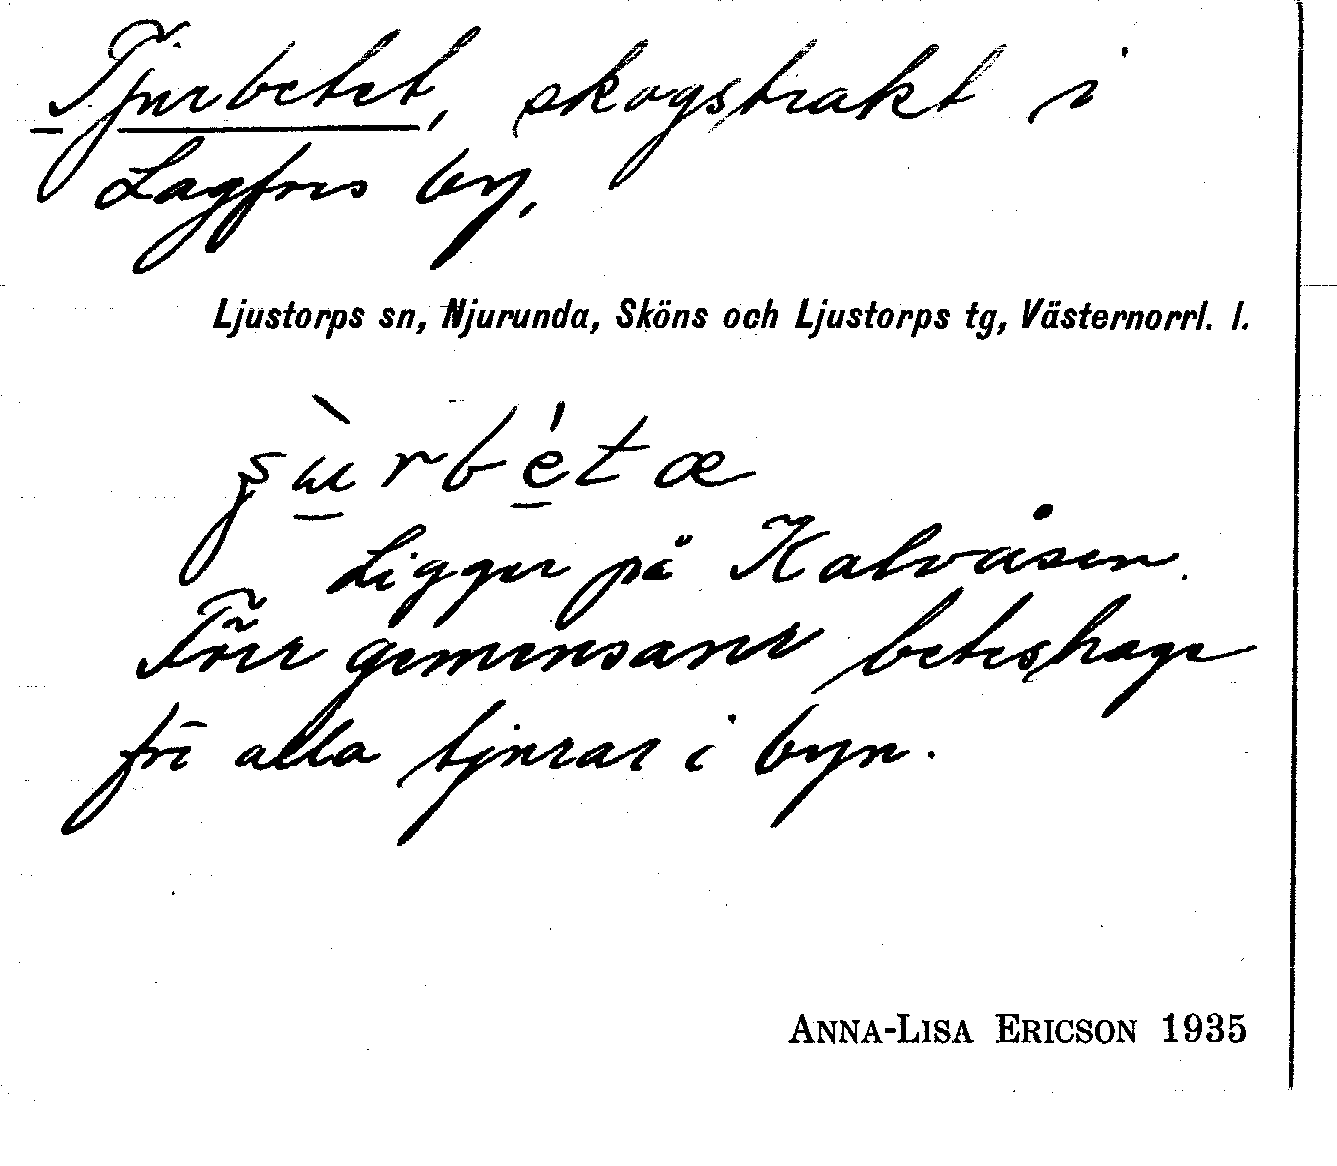 Tjurbetet, skogstrakt i
Lagfors by,
Ljustorps sn, Njurunda, Sköns och Ljustorps tg, Västernorrl. l.
Ligger på Kalvåsen.
Förr gemensam beteshage
för alla tjurar i byn.
ANNA-LISA ERICSON 1935